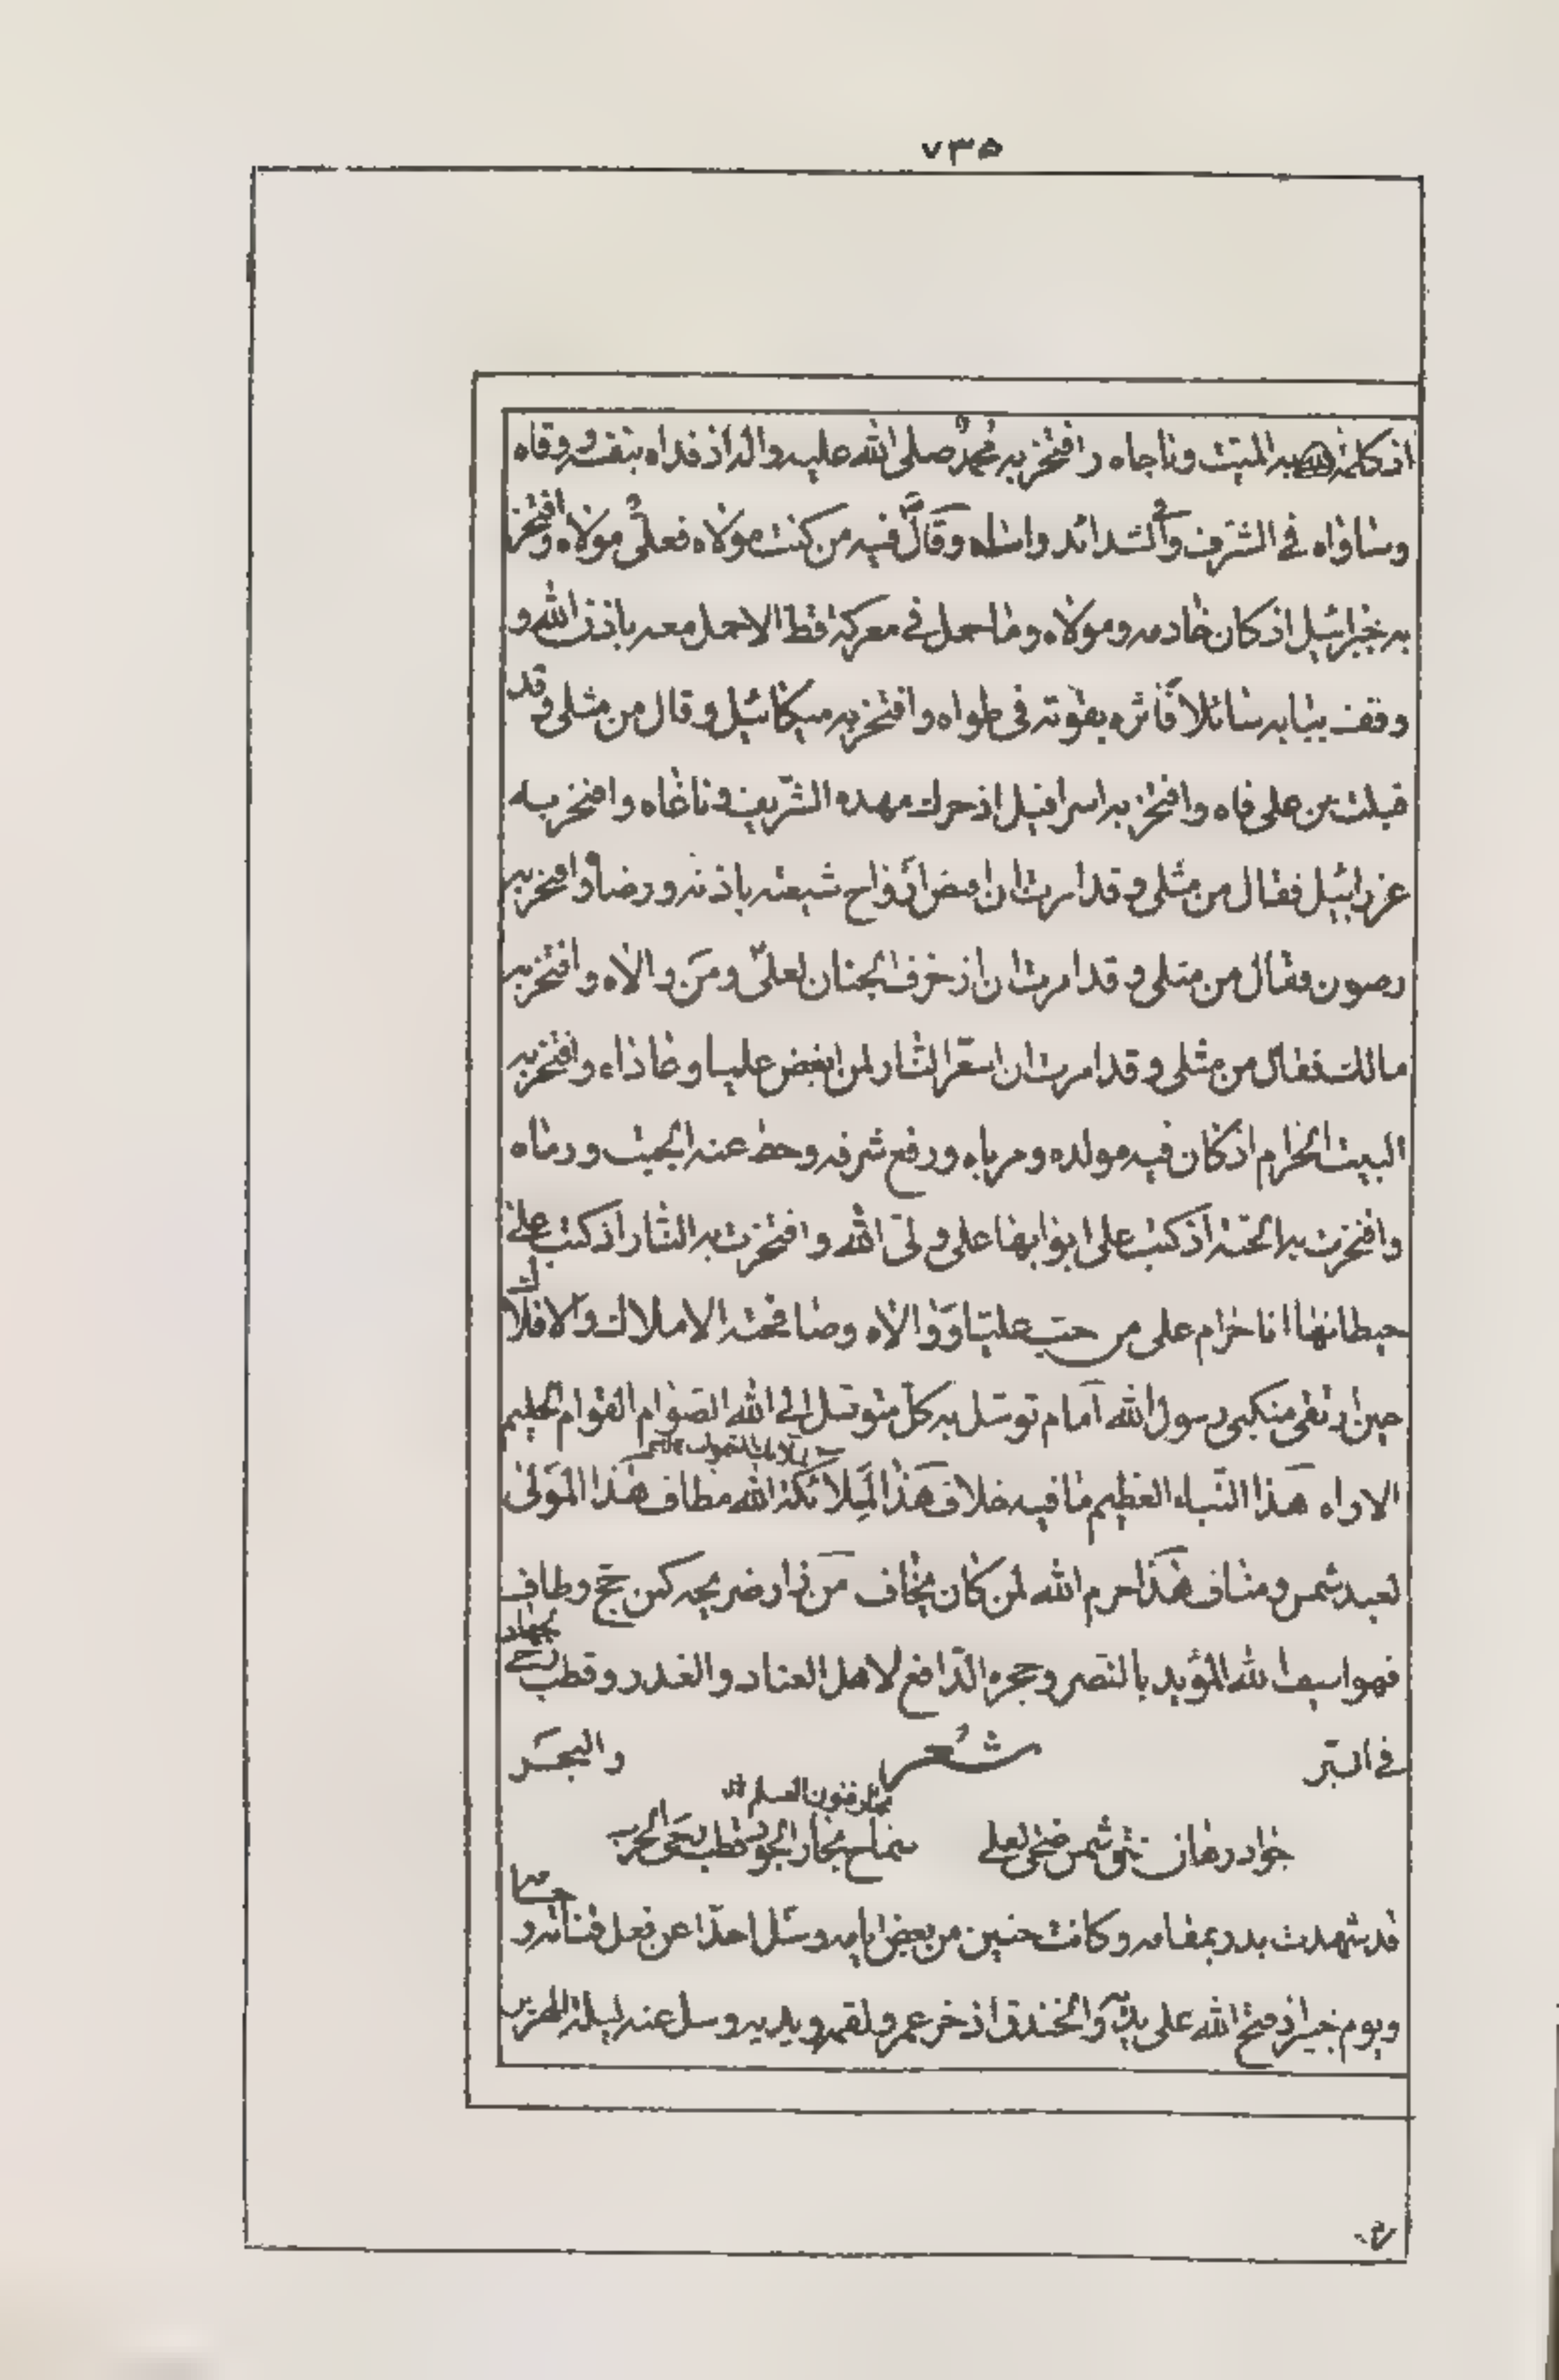 ۷۳۵
اذ كلمه به الميت وناجاه وافتخر به محمد صلى الله عليه واله اذ فداه بنفسه ووقاه
وساواه في الشرف والشدائد واساه وقال فيه من كنت مولاه فعلي مولاه وافتخر
به جبرائيل اذ كان خادمه ومولاه وما حمل في معركة قط الا حمل معه باذن الله و
وقف ببابه سائلا فاثره بقوته في طواه وافتخر به ميكائيل وقال من مثلي وقد
قبلت من علي فاه وافتخر به اسرافيل اذ حرك مهده الشريف وناغاه وافتخر به
عزرائيل فقال من مثلي وقد امرت ان اقبض ارواح شيعته باذنه ورضاه وافتخر به
رضوان فقال من مثلي وقد امرت ان ازخرف الجنان لعلي ومن والاه وافتخر به
مالك فقال من مثلي وقد امرت ان اسعر النار لمن ابغض عليا وعاداه وافتخر به
البيت الحرام اذ كان فيه مولده ومرباه ورفع شرفه وحط عنه الجبت ورماه
وافتخرت به الجنة اذ كتب على ابوابها علي ولي الله وافتخرت به النار اذ كتب على
حيطانها انا حرام على من حب عليا ووالاه وصافحته الاملاك والافلاك
حين ارتقى منكبي رسول الله امام توسل به كل متوسل الى الله الصوام القوام الحليم
الاواه هذا النباء العظيم ما فيه خلاف هذا لملائكة الله مطاف هذا المولى
لعبد شمس ومناف هذا حرم الله لمن كان يخاف من زار ضريحه كمن حج وطاف
فهو سيف الله المؤيد بالنصر وحجره الدافع لاهل العناد والغدر وقطب رحى
في البر شعر والبحر
جواد رهان شمس ضحى لعلي بحار الجود قطب رحى الحرب
قد شهدت بدر بمقامه وكانت حنين من بعض ايامه وسل احدا عن فعل قناته و
ويوم خيبر اذ فتح الله على يديه والخندق اذ خر عمرو لفمه ويديه وسل عنه ليلة الهرير